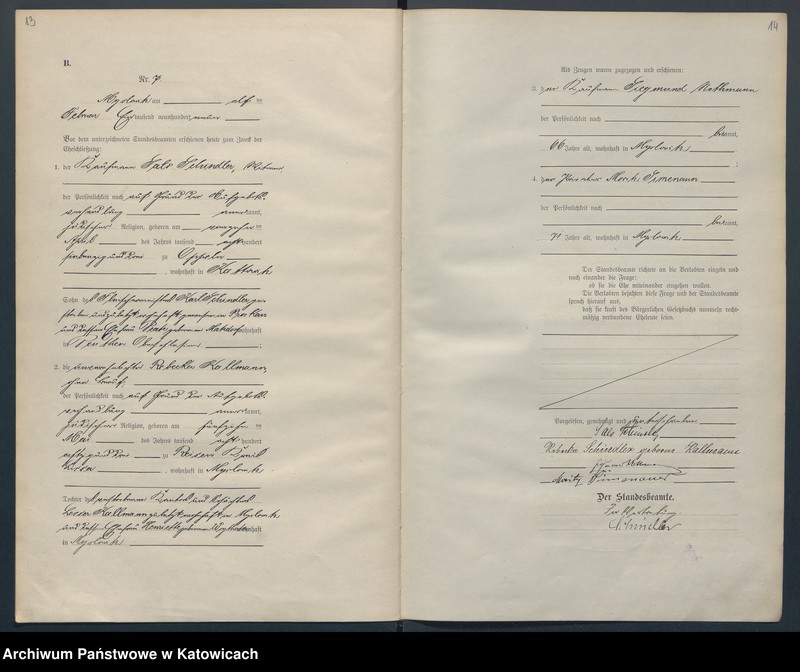 13
B.
Nr. 7
Myslowitz am elf ten
Februar Eintausend neunhundert neun
Vor dem unterzeichneten Standesbeamten erschienen heute zum Zweck der
Eheschließung:
1. der Kaufmann Salo Schindler,
der Persönlichkeit nach auf Grund der Aufgebots-
verhandlung anerkannt,
jüdischer Religion, geboren am ten
April des Jahres tausend achthundert
siebenzig und drei zu Oppeln
, wohnhaft in Kattowitz
Sohn des Fleischermeisters Karl Schindler, ver-
storben und zuletzt wohnhaft gewesen in
und dessen Ehefrau geborenen wohnhaft
in Beuthen Oberschlesien ;
2. die unverehelichte Rebecka Kallmann,
ohne Beruf,
der Persönlichkeit nach auf Grund der Aufgebots-
verhandlung anerkannt,
jüdischer Religion, geboren am fünfzehn ten
Mai des Jahres tausend achthundert
achtzig und drei zu Reisen Kreis
Lissa , wohnhaft in Myslowitz
Tochter des verstorbenen Kantors und
Kallmann zuletzt wohnhaft in Myslowitz
und dessen Ehefrau Henriette geborenen wohnhaft
in Myslowitz
14
Als Zeugen waren zugezogen und erschienen:
3. der Kaufmann Siegmund Nothmann
der Persönlichkeit nach
bekannt,
66 Jahre alt, wohnhaft in Myslowitz
;
4. der Moritz Timenauer
der Persönlichkeit nach
bekannt,
71 Jahre alt, wohnhaft in Myslowitz
Der Standesbeamte richtete an die Verlobten einzeln und
nach einander die Frage:
ob sie die Ehe miteinander eingehen wollen.
Die Verlobten bejahten diese Frage und der Standesbeamte
sprach hierauf aus,
daß sie kraft des Bürgerlichen Gesetzbuchs nunmehr recht-
mäßig verbundene Eheleute seien.
Vorgelesen, genehmigt und unterschrieben
Salo Schindler
Rebecka Schindler geborene Kallmann
Moritz Timenauer
Der Standesbeamte.
In Vertretung
Archiwum Państwowe w Katowicach